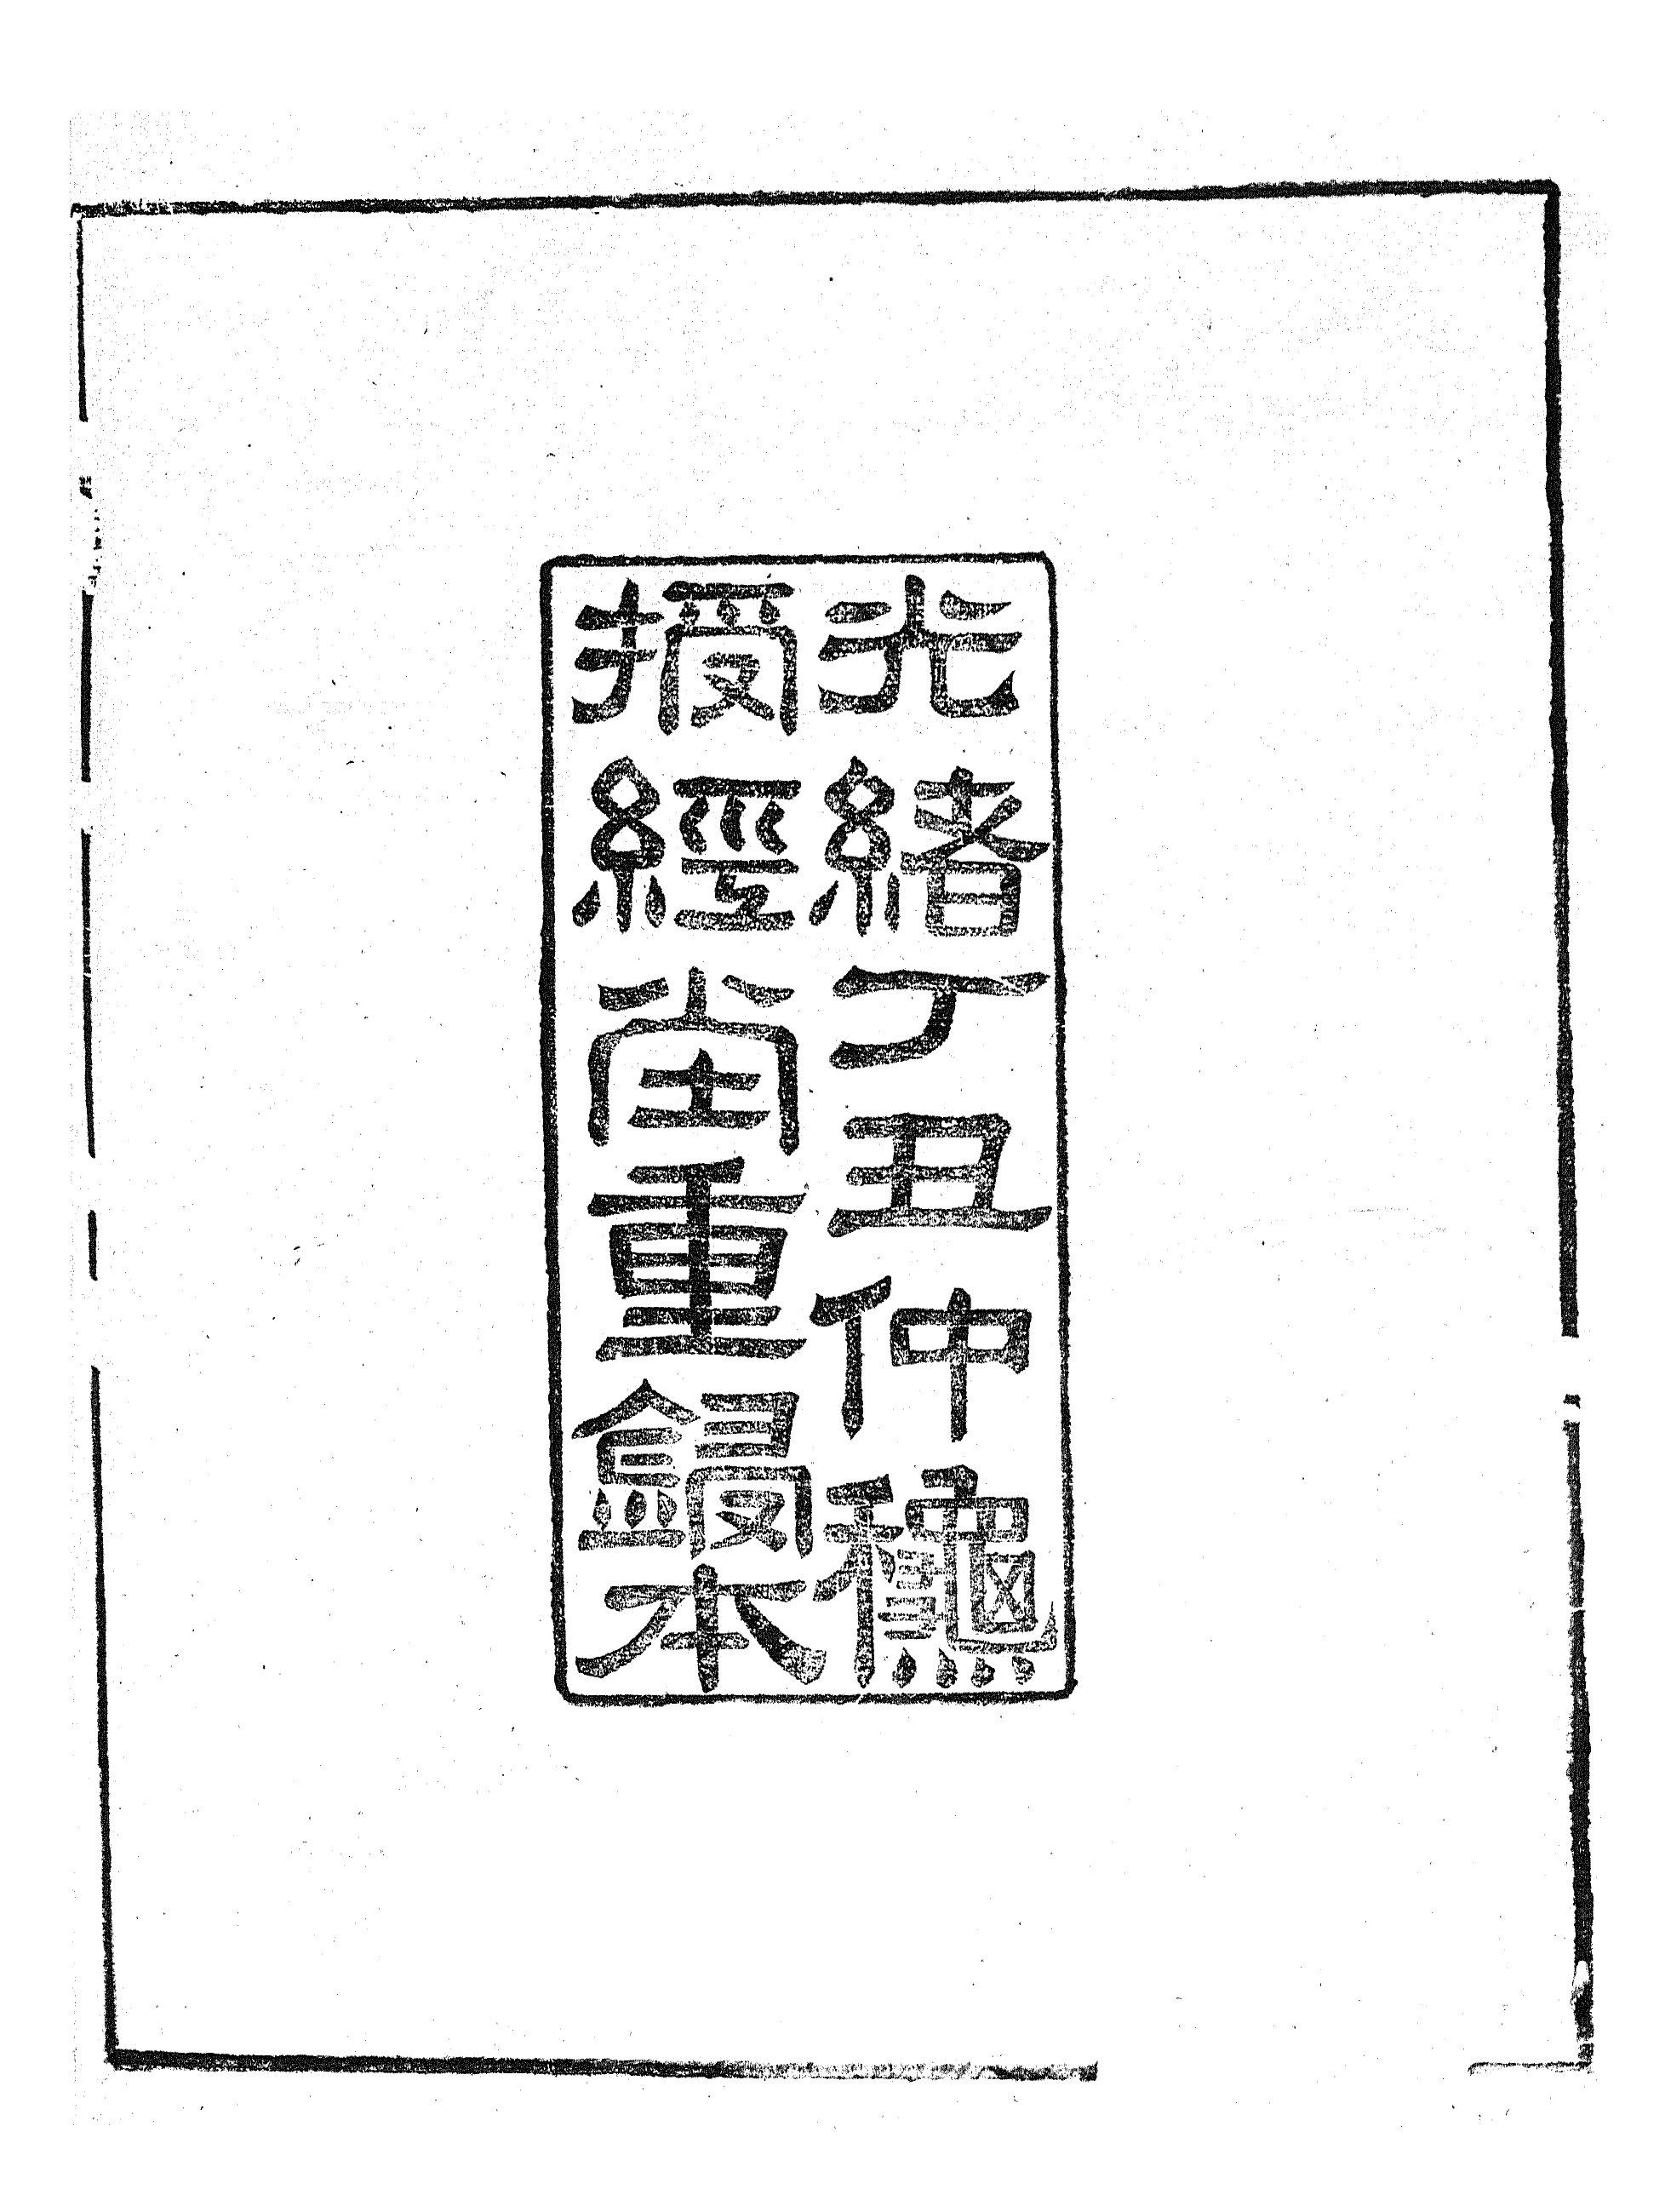 光緒丁丑仲龝
授經堂重鋟本